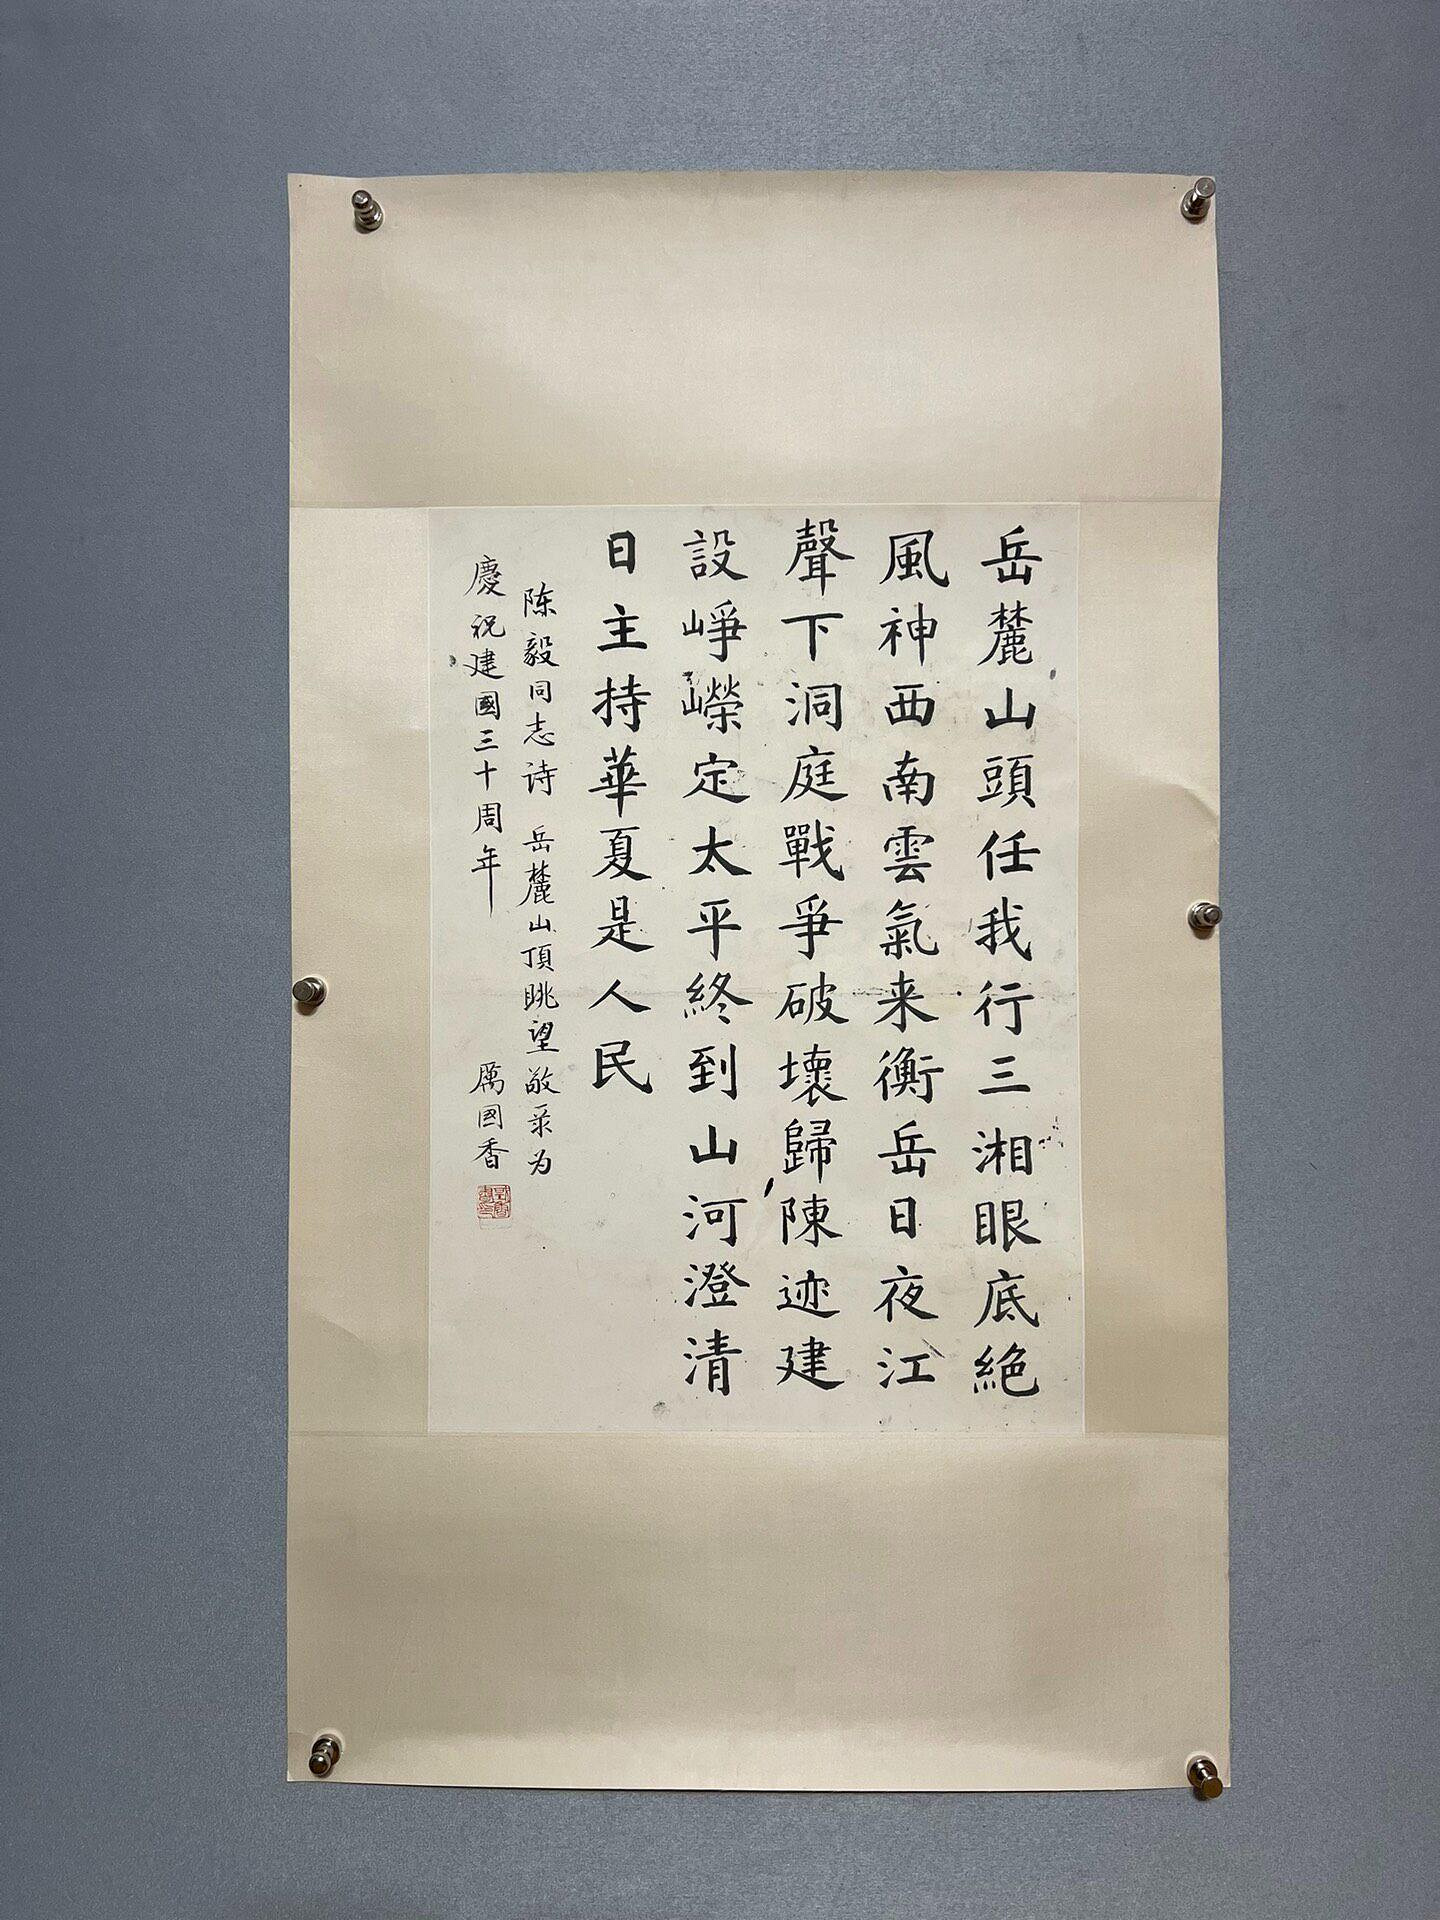 岳麓山頭任我行三湘眼底絶
風神西南雲氣来衡岳日夜江
聲下洞庭戰爭破壞歸陳迹建
設崢嶸定太平終到山河澄清
日主持華夏是人民
陈毅同志诗 岳麓山頂眺望敬录为
慶祝建國三十周年 厲國香